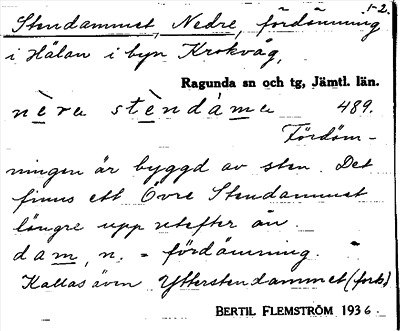 1-2.
Stendammet, Nedre, fördämning
i Hälan i byn Krokväg,
Ragunda sn och tg, Jämtl. län.
nèra stèndáma 489.
Fördäm-
ningen är byggd av sten. Det
finns ett Övre Stendammet
längre upp utefter ån.
dam, n. = fördämning.
Kallas även Yttersten dammet (forts)
BERTIL FLEMSTRÖM 1936.